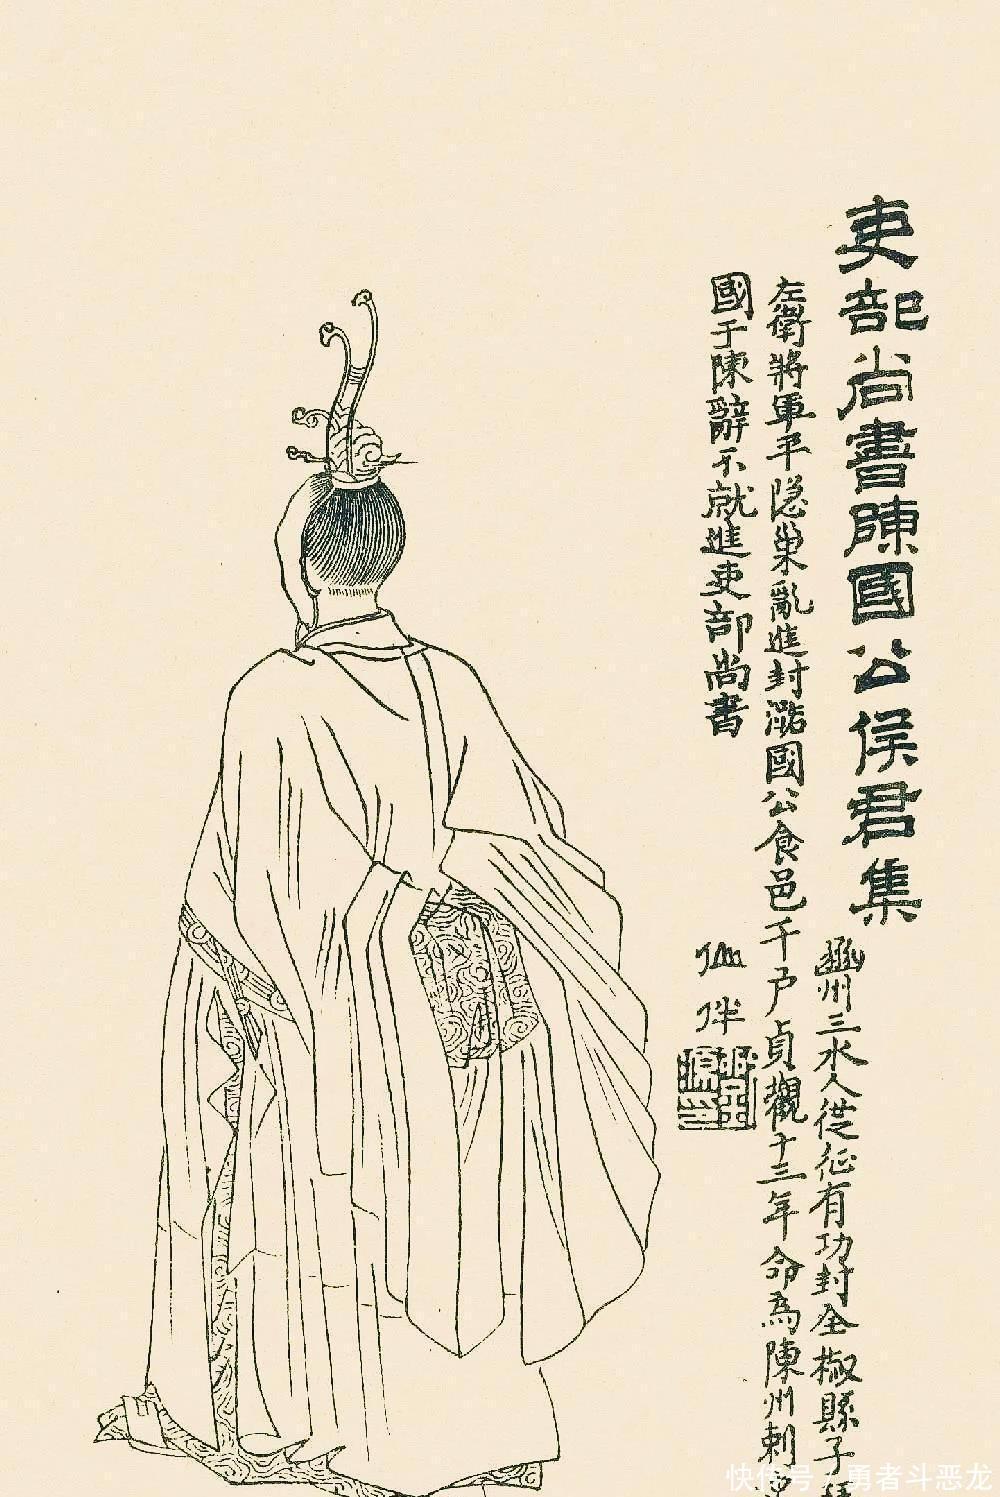 吏部尚書陳國公侯君集
豳州三水人從征有功封全椒縣子
左衛將軍平隐巢亂進封潞國公食邑千戶貞觀十三年命為陳州刺
國于陳辭不就進吏部尚書
仙伴
快传号/勇者斗恶龙